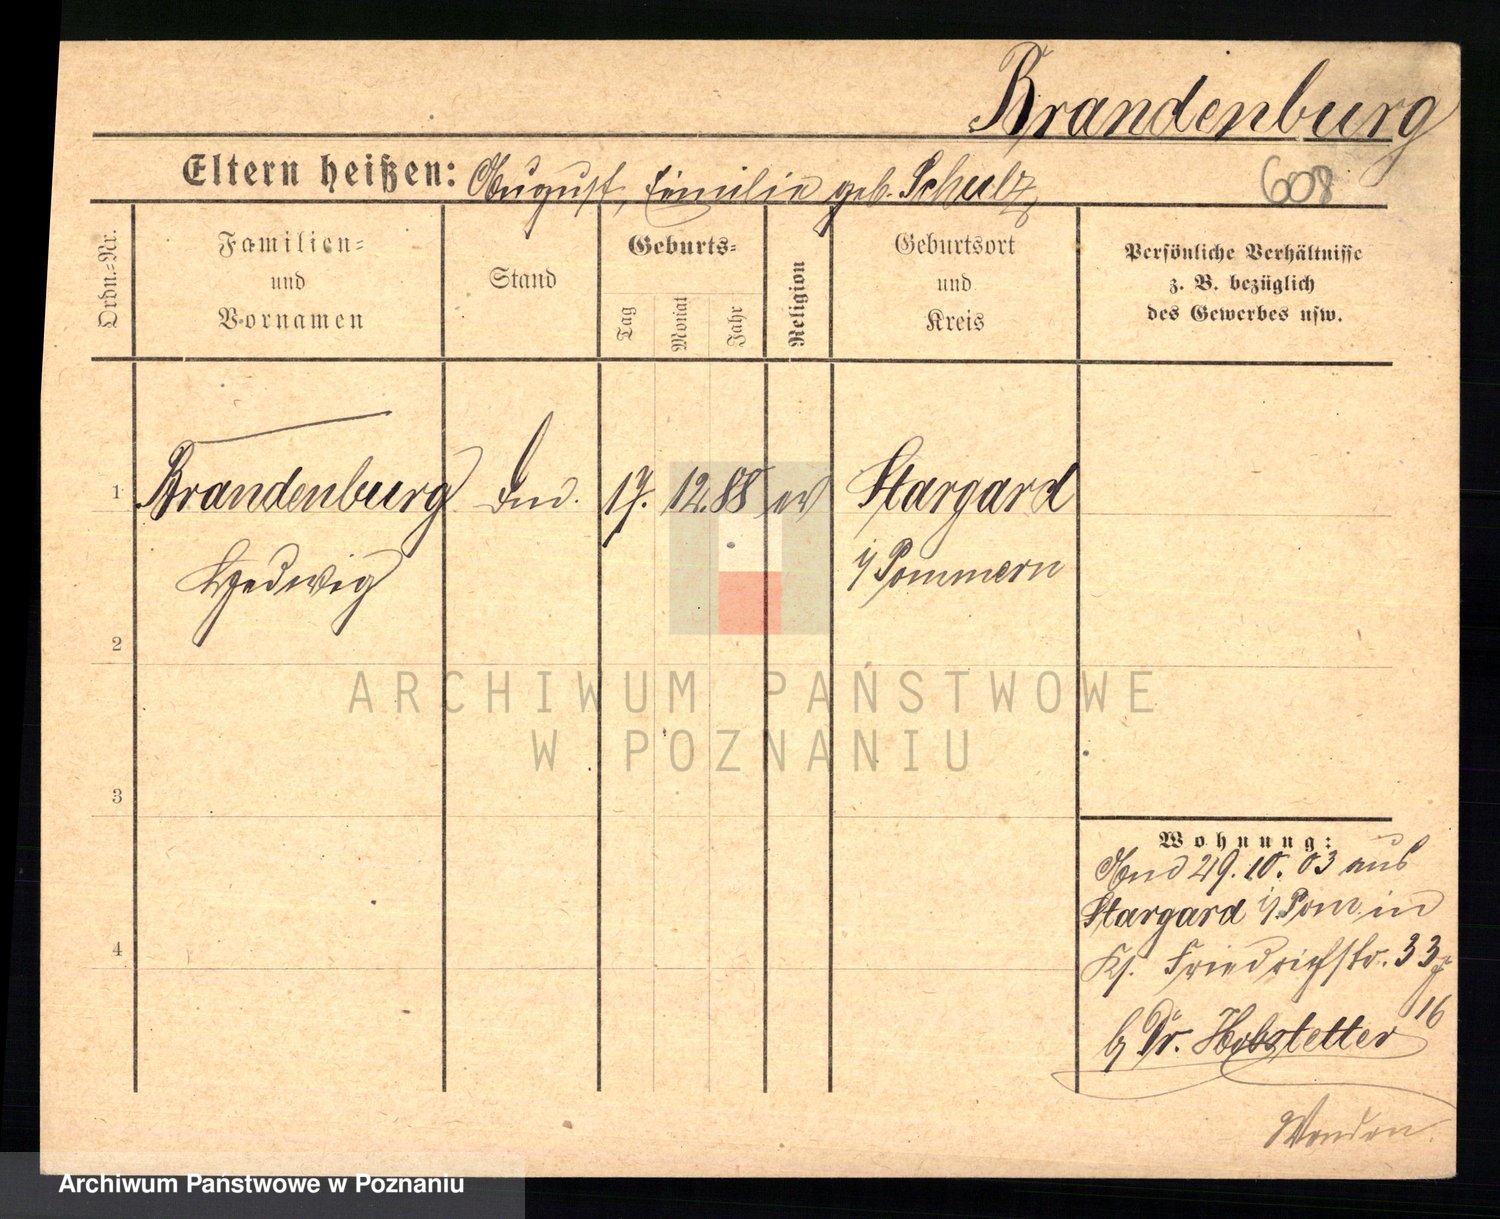 Brandenburg
608
Eltern heißen: August, Emilie geb. Schulz
Ordn.=Nr.
Familien=
und
Vornamen
Stand
Geburts=
Tag
Monat
Jahr
Religion
Geburtsort
und
Kreis
Persönliche Verhältnisse
z. B. bezüglich
des Gewerbes usw.
1 Brandenburg 17. 12. 88 ev Stargard
Hedwig i/Pommern
2
3
4
ARCHIWUM PAŃSTWOWE
W POZNANIU
Wohnung:
29. 10. 03 aus
Stargard i/Pom. in
Friedrichstr. 33
16
b/ Dr. Hobstetter
Wenden.
Archiwum Państwowe w Poznaniu